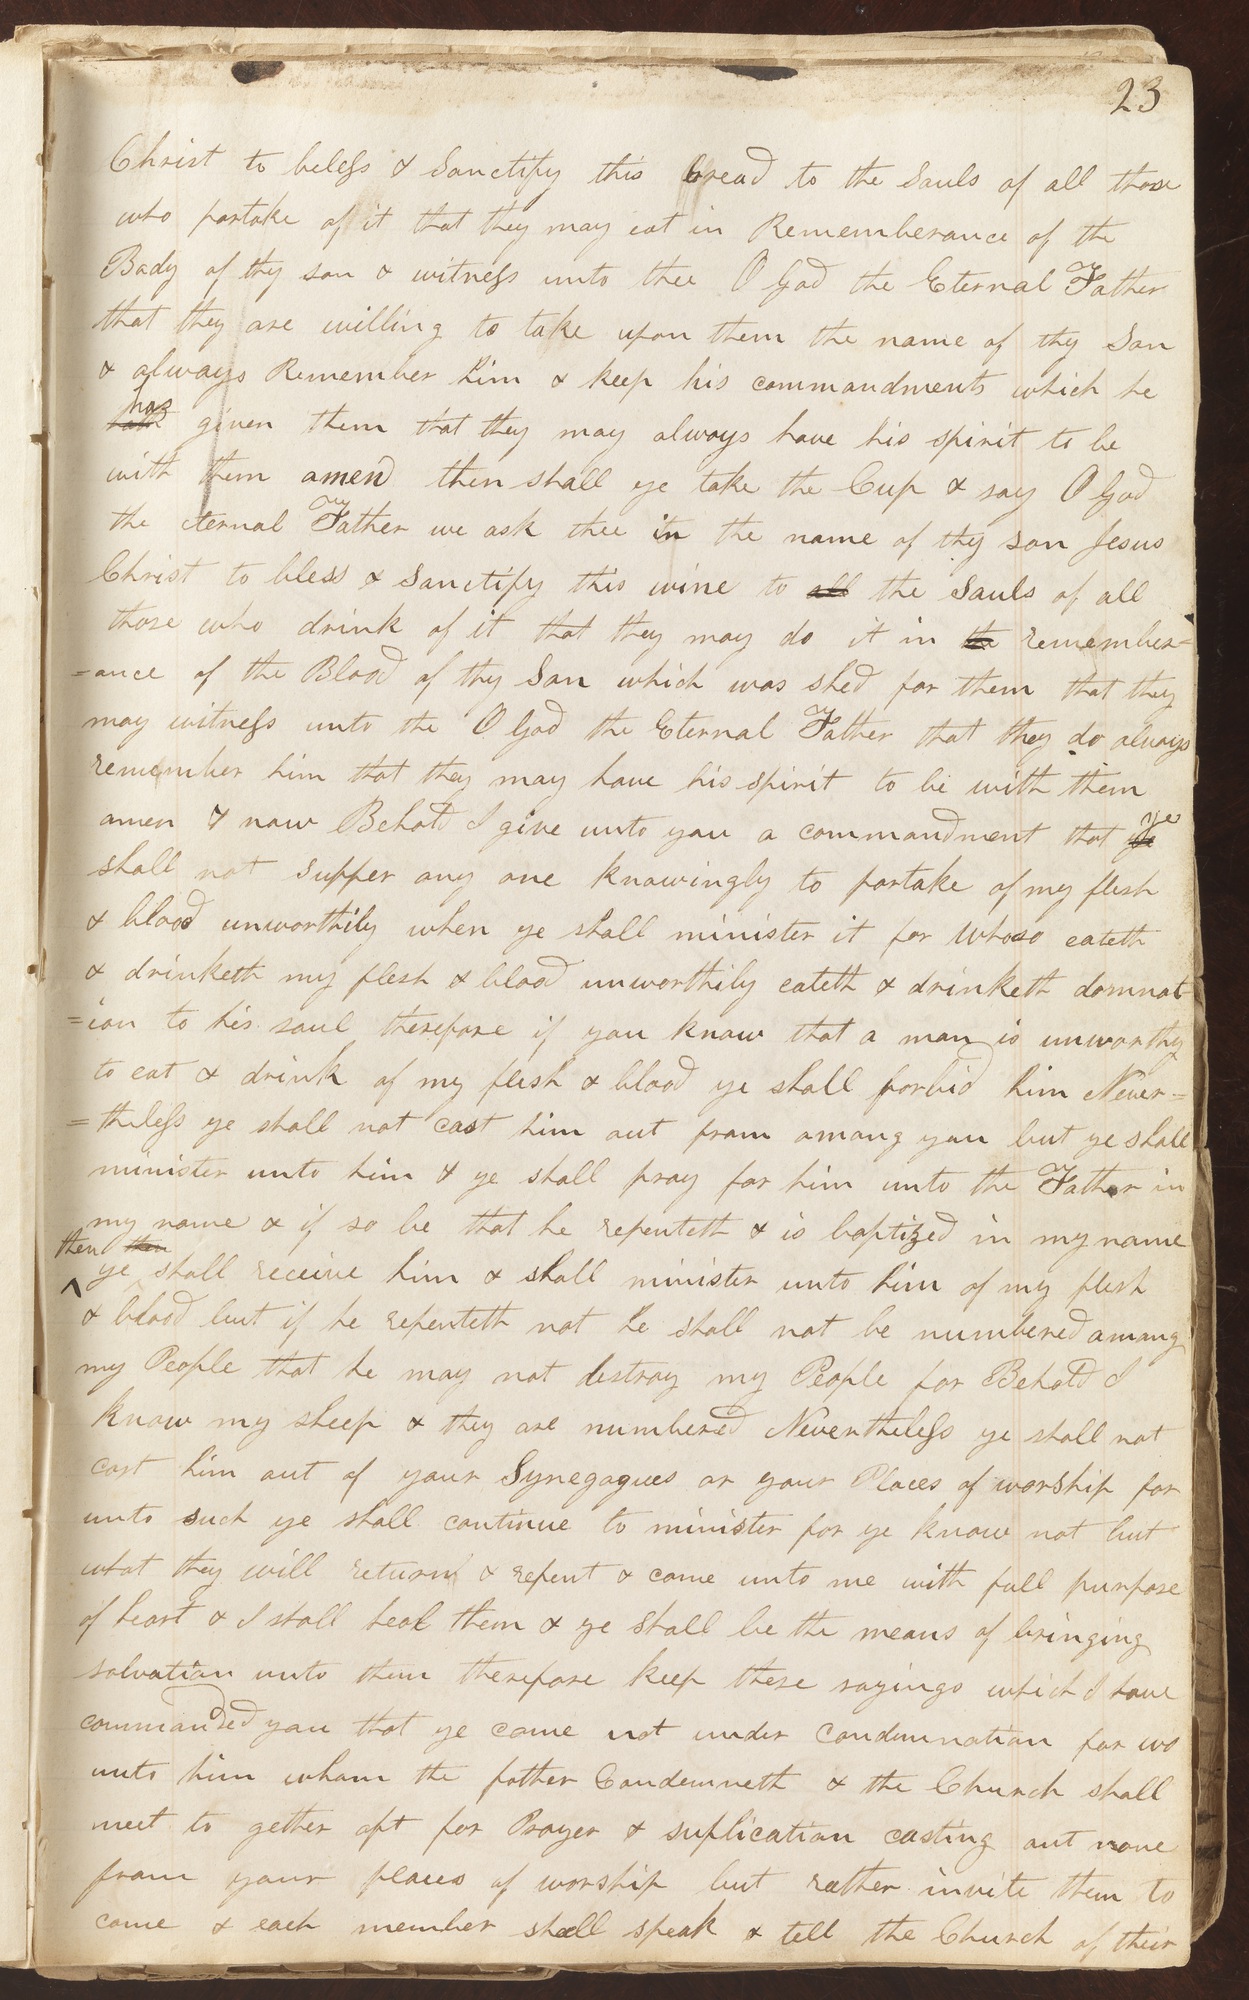 23
Christ to beless & Sanctify this bread to the Souls of all those
who partake of it that they may eat in Rememberance of the
Body of thy son & witness unto thee O God the Eternal Father
that they are willing to take upon them the name of thy Son
& always Remember him & keep his commandments which he
has
hath given them that they may always have his spirit to be
with them amen then shall ye take the Cup & say O God
the eternal Father we ask thee in the name of thy son Jesus
Christ to bless & Sanctify this wine to all the Souls of all
those who drink of it that they may do it in the remember=
=ance of the Blood of thy Son which was shed for them that they
may witness unto the O God the Eternal Father that they do always
remember him that they may have his spirit to be with them
amen & now Behold I give unto you a commandment that ye ye
shall not suffer any one knowingly to partake of my flesh
& blood unworthily when ye shall minister it for whoso eateth
& drinketh my flesh & blood unworthily eateth & drinketh damnat
=ion to his soul therefore if you know that a man is unworthy
to eat & drink of my flesh & blood ye shall forbid him Never=
=theless ye shall not cast him out from among you but ye shall
minister unto him & ye shall pray for him unto the Father in
my name & if so be that he repenteth & is baptized in my name
then then
^ ye shall receive him & shall minister unto him of my flesh
& blood but if he repenteth not he shall not be numbered among
my People that he may not destroy my People for Behold I
know my sheep & they are numbered Nevertheless ye shall not
cast him out of your Synegogues or your Places of worship for
unto such ye shall continue to minister for ye know not but
what they will return & repent & come unto me with full purpose
of heart & I shall heal them & ye shall be the means of bringing
salvation unto them therefore keep these sayings which I have
commanded you that ye come not under Condemnation for wo
unto him whom the father Condemneth & the Church shall
meet to gether oft for Prayer & suplication casting out none
from your places of worship but rather invite them to
come & each member shall speak & tell the Church of their